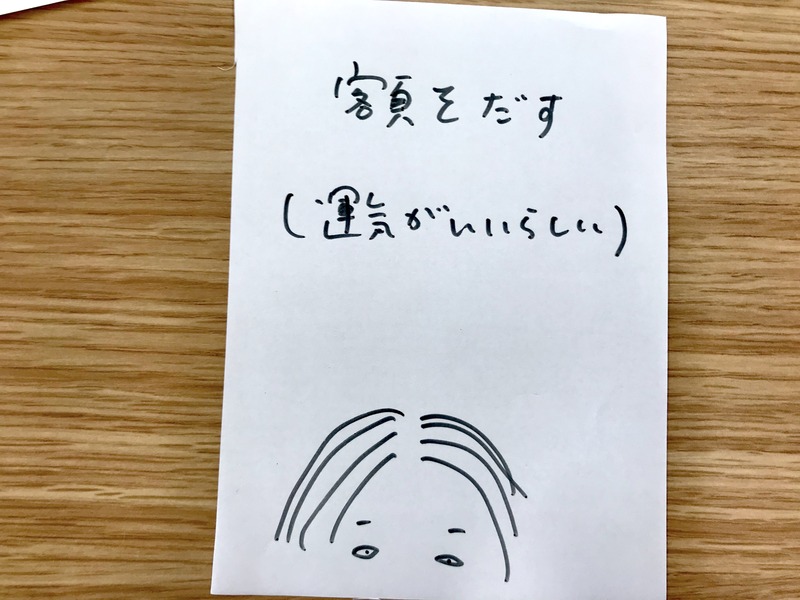 額をだす
(運気がいいらしい)